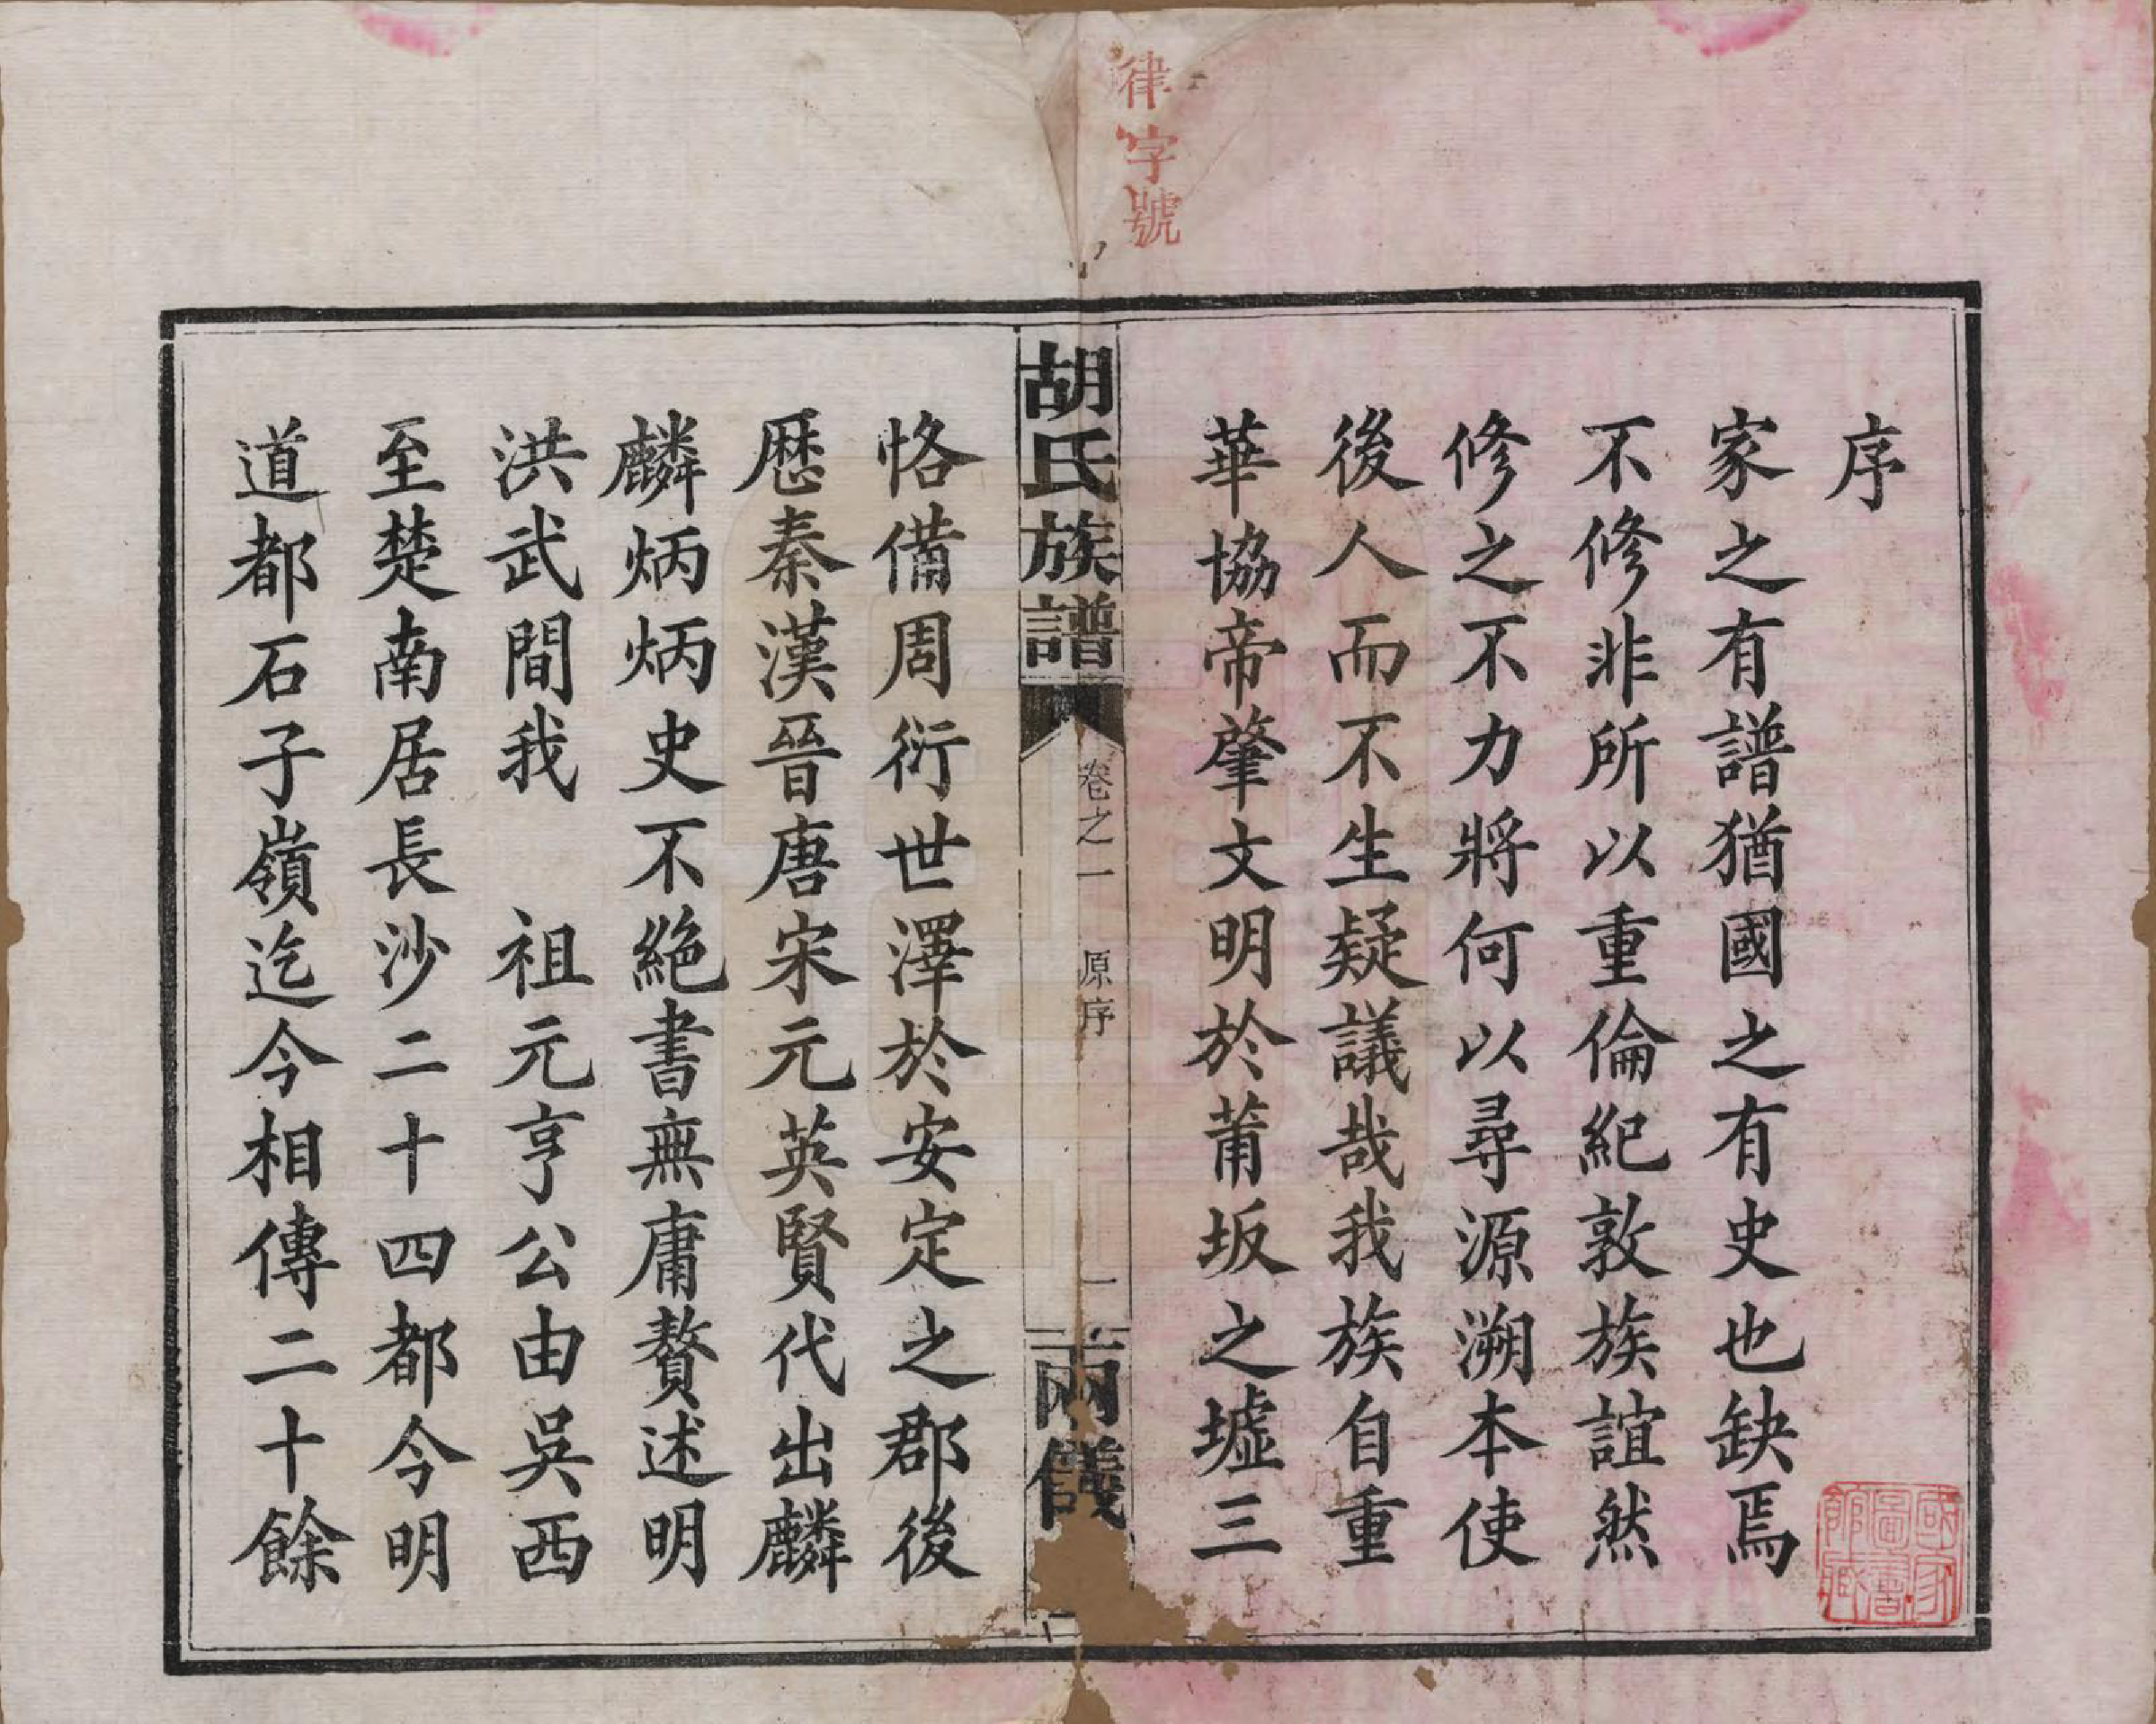 律字號
序
家之有譜猶國之有史也缺焉
不修非所以重倫紀敦族誼然
修之不力將何以尋源溯本使
後人而不生疑議哉我族自重
華協帝肇文明於莆坂之墟三
胡氏族譜
卷之一
原序
一
兩儀
恪備周衍世澤於安定之郡後
歷秦漢晉唐宋元英賢代出麟
麟炳炳史不絕書無庸贅述明
洪武間我　祖元亨公由吳西
至楚南居長沙二十四都今明
道都石子嶺迄今相傳二十餘
國家
圖書
館藏